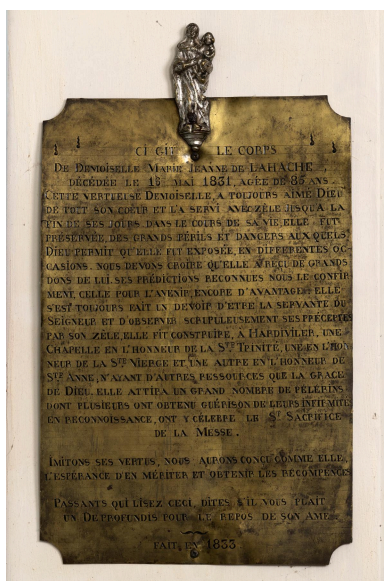 CI GIT LE CORPS
DE DEMOISELLE MARIE JEANNE DE LAHACHE
DÉCÉDÉE LE 15 MAI 1831, AGÉE DE 85 ANS
CETTE VERTUEUSE DEMOISELLE, A TOUJOURS AIMÉ DIEU
DE TOUT SON CŒUR ET L'A SERVI AVEC ZÈLE JUSQU'A LA
FIN DE SES JOURS. DANS LE COURS DE SA VIE, ELLE FUT
PRÉSERVÉE, DES GRANDS PÉRILS ET DANGERS AUX QUELS
DIEU PERMIT QU'ELLE FUT EXPOSÉE, EN DIFFÉRENTES OC-
CASIONS. NOUS DEVONS CROIRE QU'ELLE A REÇU DE GRANDS
DONS DE LUI. SES PRÉDICTIONS RECONNUES NOUS LE CONFIR
MENT, CELLE POUR L'AVENIR, ENCORE D'AVANTAGE. ELLE
S'EST TOUJOURS FAIT UN DEVOIR D'ÊTRE LA SERVANTE DU
SEIGNEUR ET D'OBSERVER SCRUPULEUSEMENT SES PRÉCEPTES
PAR SON ZÈLE, ELLE FIT CONSTRUIRE, À HARDIVILER, UNE
CHAPELLE EN L'HONNEUR DE LA STE TRINITÉ, UNE EN L'HON
NEUR DE LA STE VIERGE ET UNE AUTRE EN L'HONNEUR DE
STE ANNE, N'AYANT D'AUTRES RESSOURCES QUE LA GRACE
DE DIEU. ELLE ATTIRA UN GRAND NOMBRE DE PÉLERINS
DONT PLUSIEURS ONT OBTENU GUÉRISON DE LEURS INFIRMITÉS
EN RECONNOISSANCE, ONT Y CÉLEBRE LE ST SACRIFICE
DE LA MESSE.
IMITONS SES VERTUS, NOUS AURONS CONCU COMME ELLE,
L'ESPÉRANCE D'EN MÉRITER ET OBTENIR LES RÉCOMPENCES
PASSANTS QUI LISEZ CECI, DITES S'IL VOUS PLAIT
UN DE PROFUNDIS POUR LE REPOS DE SON AME.
FAIT EN 1833